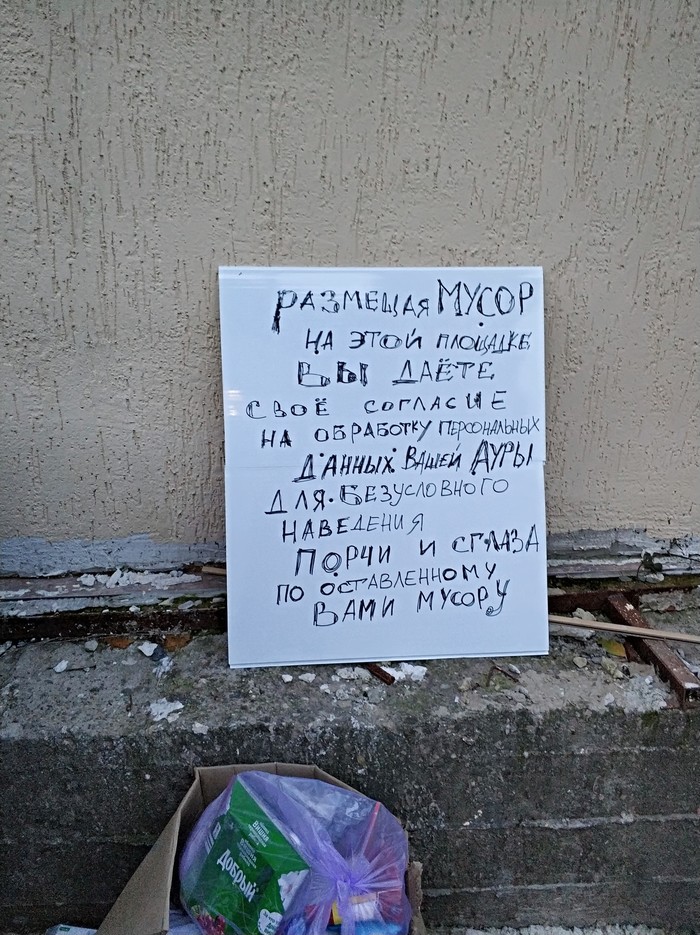 РАЗМЕЩАЯ МУСОР
НА ЭТОЙ ПЛОЩАДКЕ
ВЫ ДАЁТЕ
СВОЁ СОГЛАСИЕ
НА ОБРАБОТКУ ПЕРСОНАЛЬНЫХ
ДАННЫХ ВАШЕЙ АУРЫ
ДЛЯ БЕЗУСЛОВНОГО
НАВЕДЕНИЯ
ПОРЧИ И СГЛАЗА
ПО ОСТАВЛЕННОМУ
ВАМИ МУСОРУ
Добрый